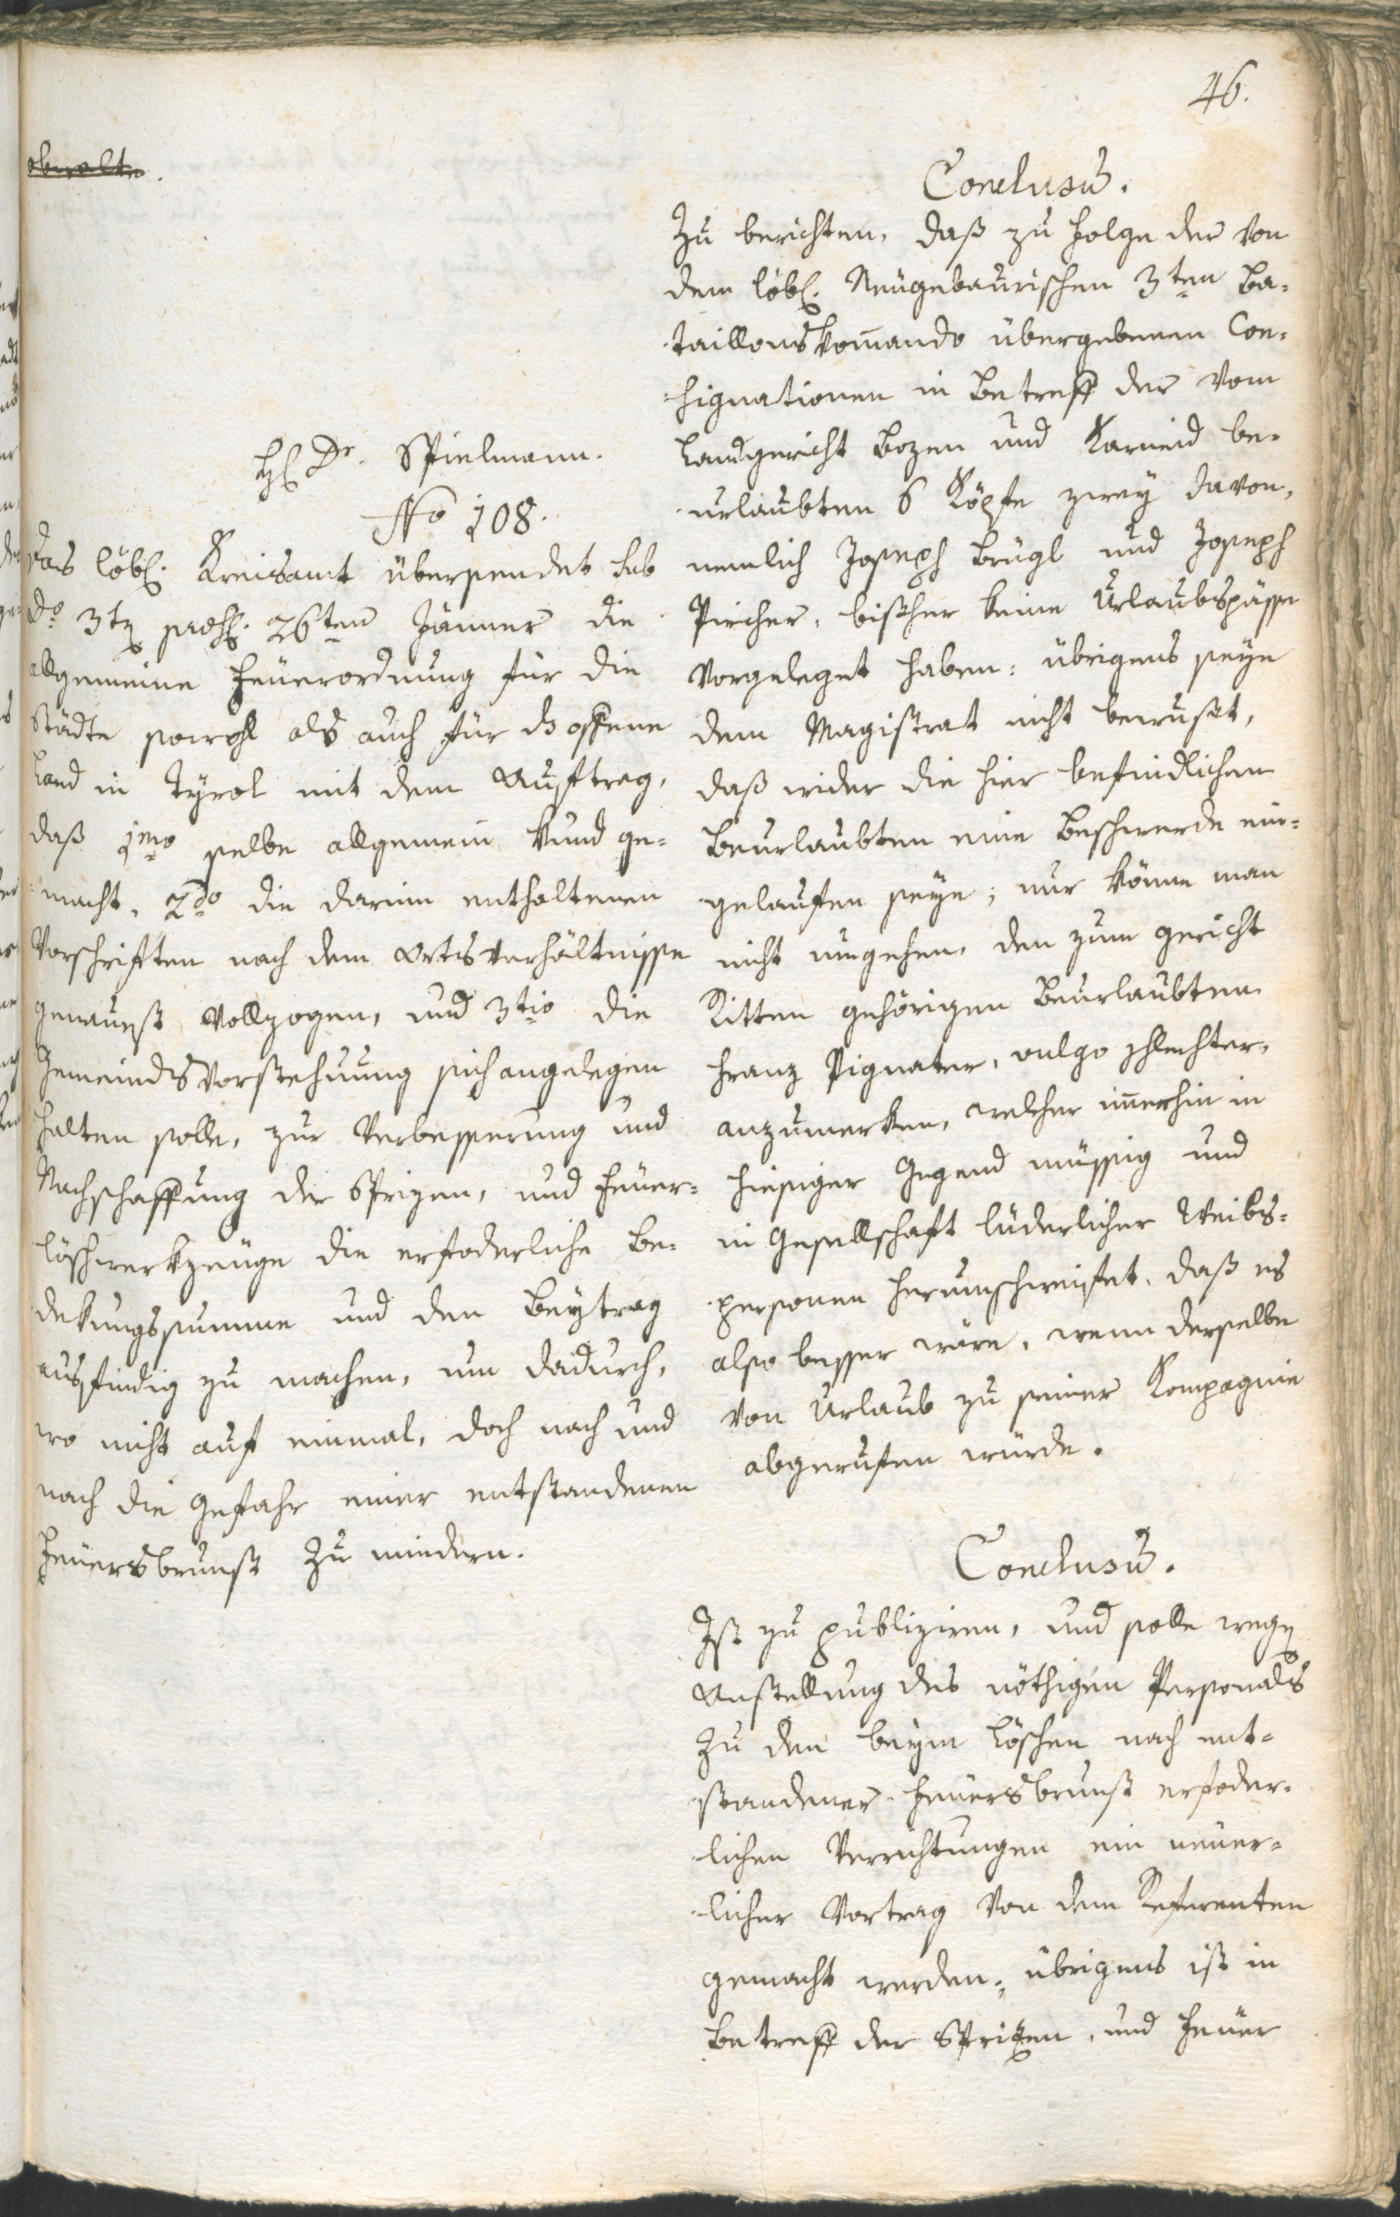 46.
obwalte.
Conclusū.
Zu berichten, daß zu Folge der von
dem löbl. Neugebaurischen 3ten Ba-
taillonskom̄ando übergebenen Con-
signationen in Betreff der vom
Landgericht Bozen und Karneid be-
urlaubten 6 Köpfe zwey davon,
nemlich Joseph Brugl und Joseph
Pircher, bißher keine Urlaubspässe
vorgeleget haben: übrigens seye
dem Magistrat nicht bewußt,
daß wider die hier befindlichen
Beurlaubten eine Beschwerde ein-
gelaufen seye; nur könne man
nicht umgehen, den zum Gericht
Ritten gehörigen Beurlaubten
Franz Pignater, vulgo Schlechter,
anzumerken, welcher im̄erhin in
hiesiger Gegend müssig und
in Gesellschaft lüderlicher Weibs-
personen herumschweifet, daß es
also besser wäre, wenn derselbe
von Urlaub zu seiner Kompagnie
abgerufen würde.
H. Dr. Spielmann.
No 108.
Das löbl. Kreisamt übersendet sub
do 3tn 26ten Jänner die
allgemeine Feuerordnung für die
Städte sowohl als auch für das offene
Land in Tyrol mit dem Auftrag,
daß 1mo selbe allgemein kund ge-
macht, 2do die darinn enthaltenen
Vorschriften nach dem Ortsverhältnisse
genauest vollzogen, und 3tio die
Gemeindsvorstehuung sich angelegen
halten solle, zur Verbesserung und
Nachschaffung der Sprizen, und Feuer-
löschwerkzeuge die erfoderliche Be-
dekungssumme und den Beytrag
ausfindig zu machen, um dadurch,
wo nicht auf einmal, doch nach und
nach die Gefahr einer entstandenen
Feuersbrunst zu mindern.
Conclusū.
Ist zu publiziren, und solle wegn
Anstellung des nöthigen Personals
zu den beym Löschen nach ent-
standener Feuersbrunst erfoder-
lichen Verrichtungen ein neuer-
licher Vortrag von dem Referenten
gemacht werden; übrigens ist in
Betreff der Sprizen, und Feuer